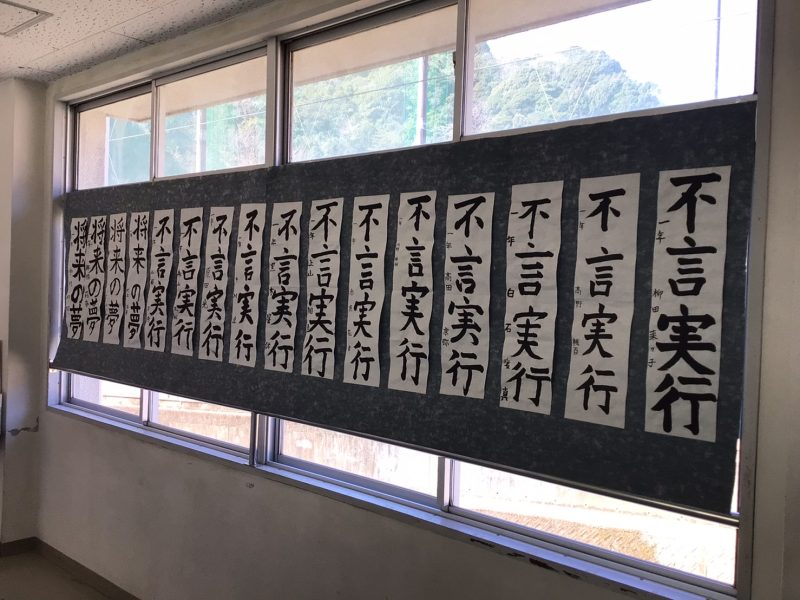 不言実行
一年 柳田
不言実行
一年 高野
不言実行
一年 白石
不言実行
一年 高田
不言実行
不言実行
不言実行
不言実行
不言実行
不言実行
不言実行
不言実行
将来の夢
将来の夢
将来の夢
将来の夢